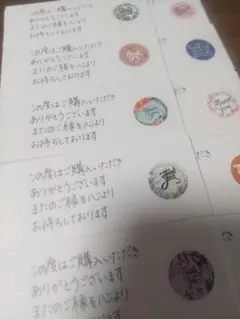 この度はご購入いただき
ありがとうございます
またのご縁を心より
お待ちしております
この度はご購入いただき
ありがとうございます
またのご縁を心より
お待ちしております
この度はご購入いただき
ありがとうございます
またのご縁を心より
お待ちしております
この度はご購入いただき
ありがとうございます
またのご縁を心より
お待ちしております
この度はご購入いただき
ありがとうございます
またのご縁を心より